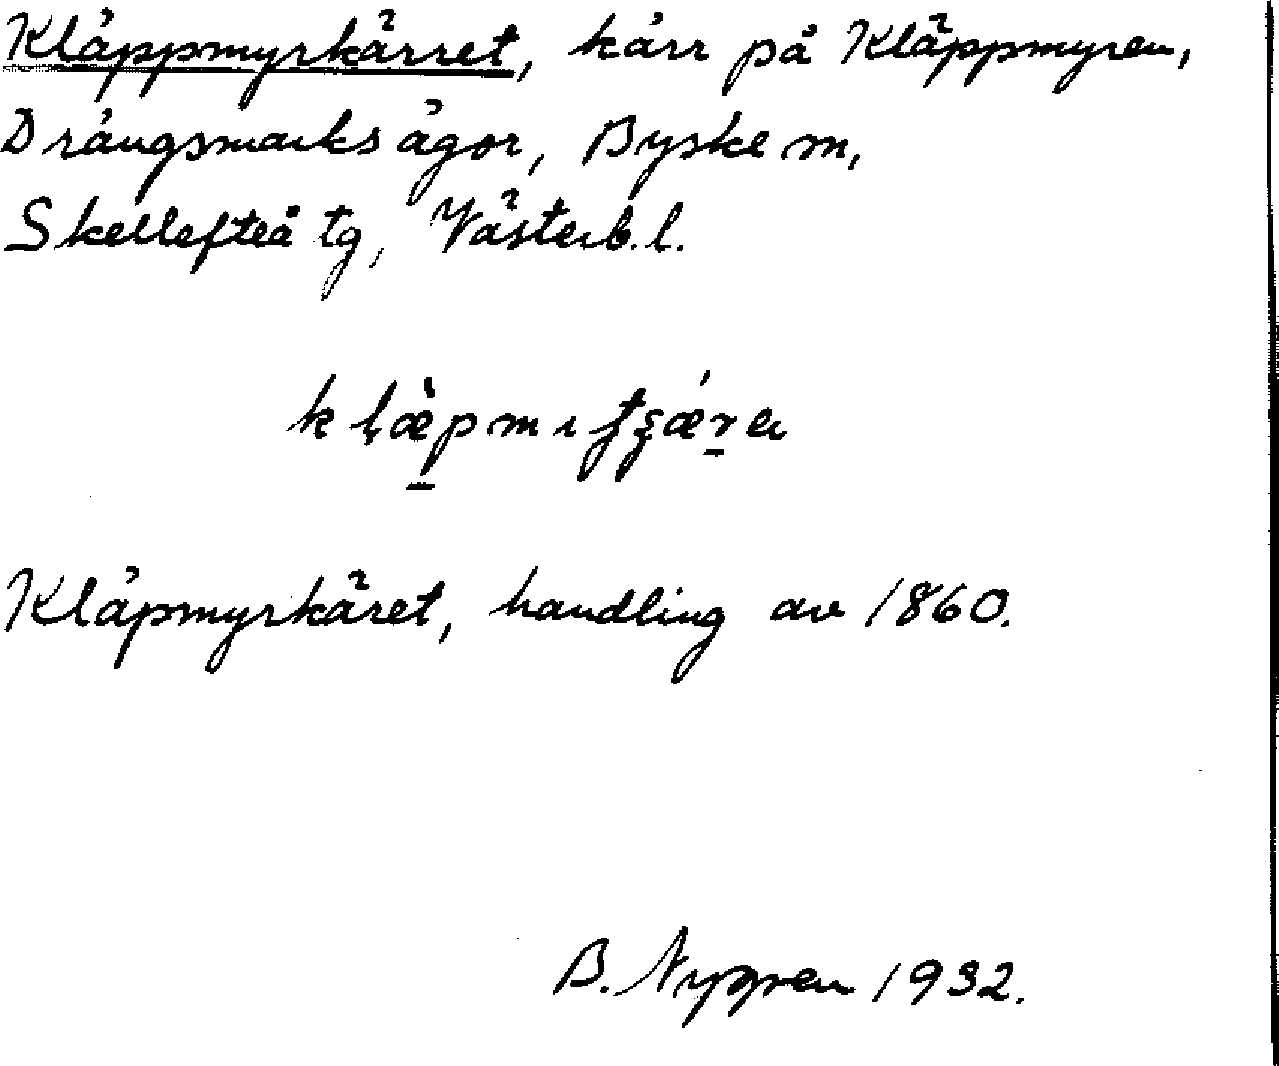 Kläppmyrkärret, kärr på Kläppmyren,
Drängsmarks ägor, Byske sn,
Skellefteå tg, Västerb. l.
Kläpmyrkäret, handling av 1860.
B. Nygren 1932.